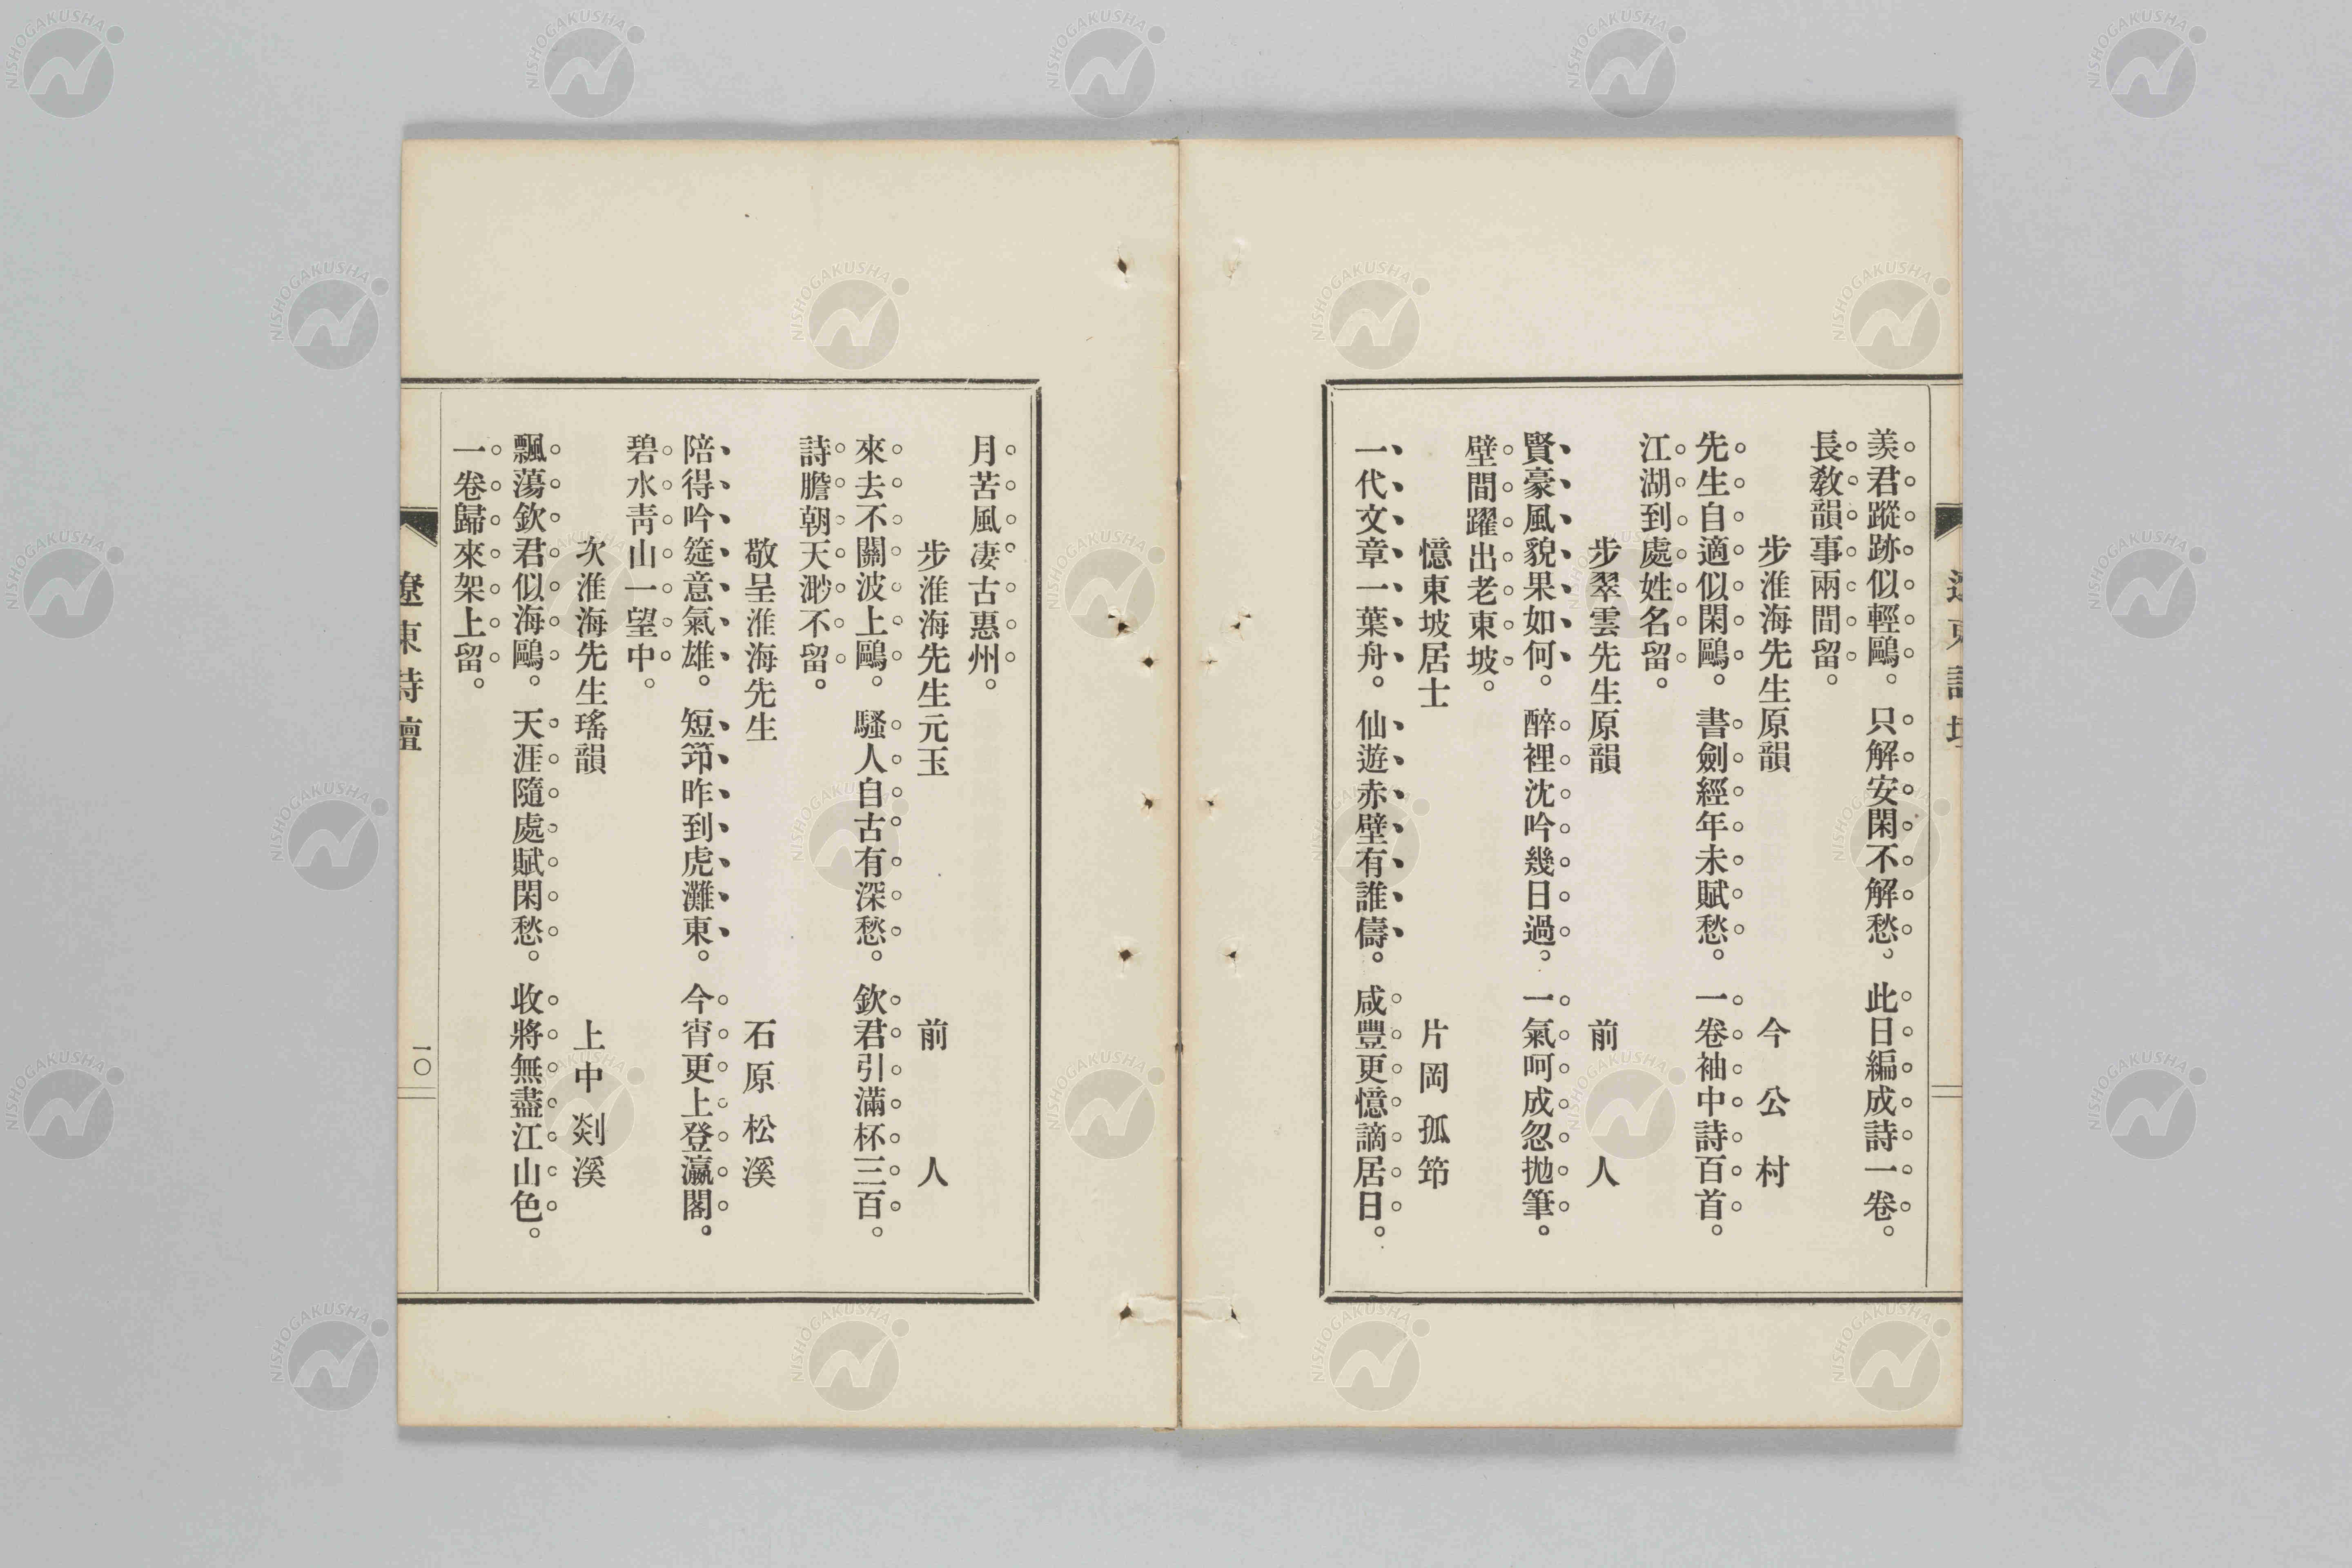 羨君蹤跡似輕鷗。只解安閑不解愁。此日編成詩一卷。
長敎韻事兩間留。
步淮海先生原韻 今公村
先生自適似閑鷗。書劍經年未賦愁。一卷袖中詩百首。
江湖到處姓名留。
步翠雲先生原韻 前人
賢豪風貌果如何。醉裡沈吟幾日過。一氣呵成忽抛筆。
壁間躍出老東坡。
憶東坡居士 片岡孤筇
一代文章一葉舟。仙遊赤壁有誰儔。咸豐更憶謫居日。
月苦風凄古惠州。
步淮海先生元玉 前人
來去不關波上鷗。騷人自古有深愁。欽君引滿杯三百。
詩膽朝天渺不留。
敬呈淮海先生 石原松溪
陪得吟筵意氣雄。短筇昨到虎灘東。今宵更上登瀛閣。
碧水靑山一望中。
次淮海先生瑤韻 上中剡溪
飄蕩欽君似海鷗。天涯隨處賦閑愁。收將無盡江山色。
一卷歸來架上留。
遼東詩壇 一〇
NISHOGAKUSHA